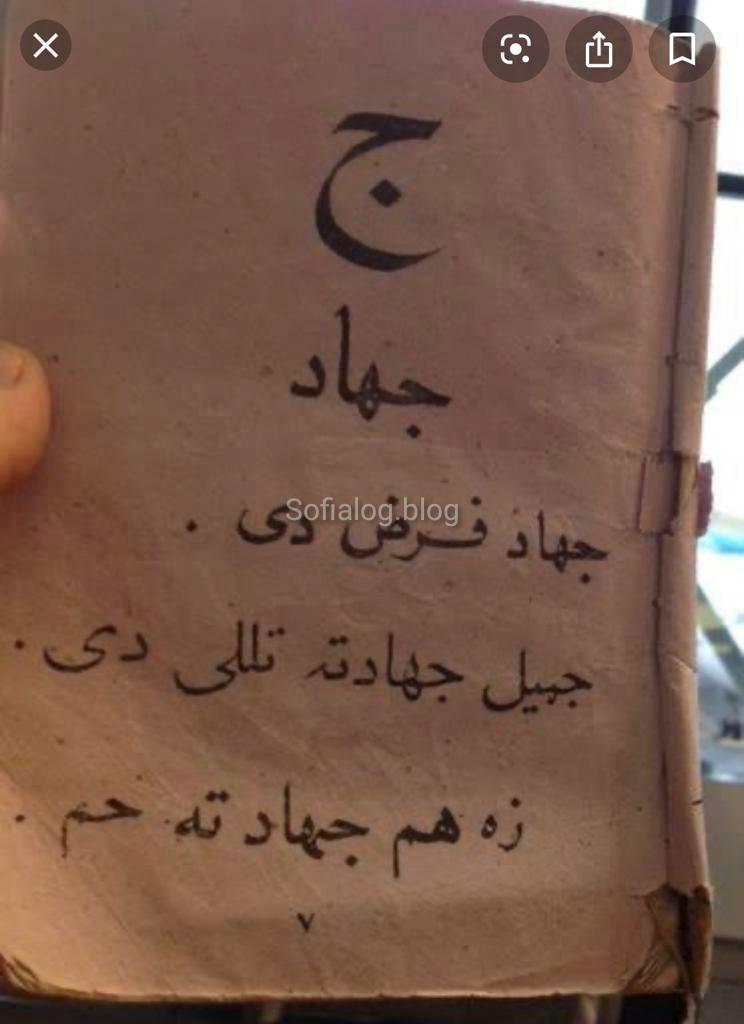 ج
جهاد
جهاد فرض دی .
Sofialog.blog
جبیل جهادته تللی دی .
زه هم جهاد ته حم .
۷